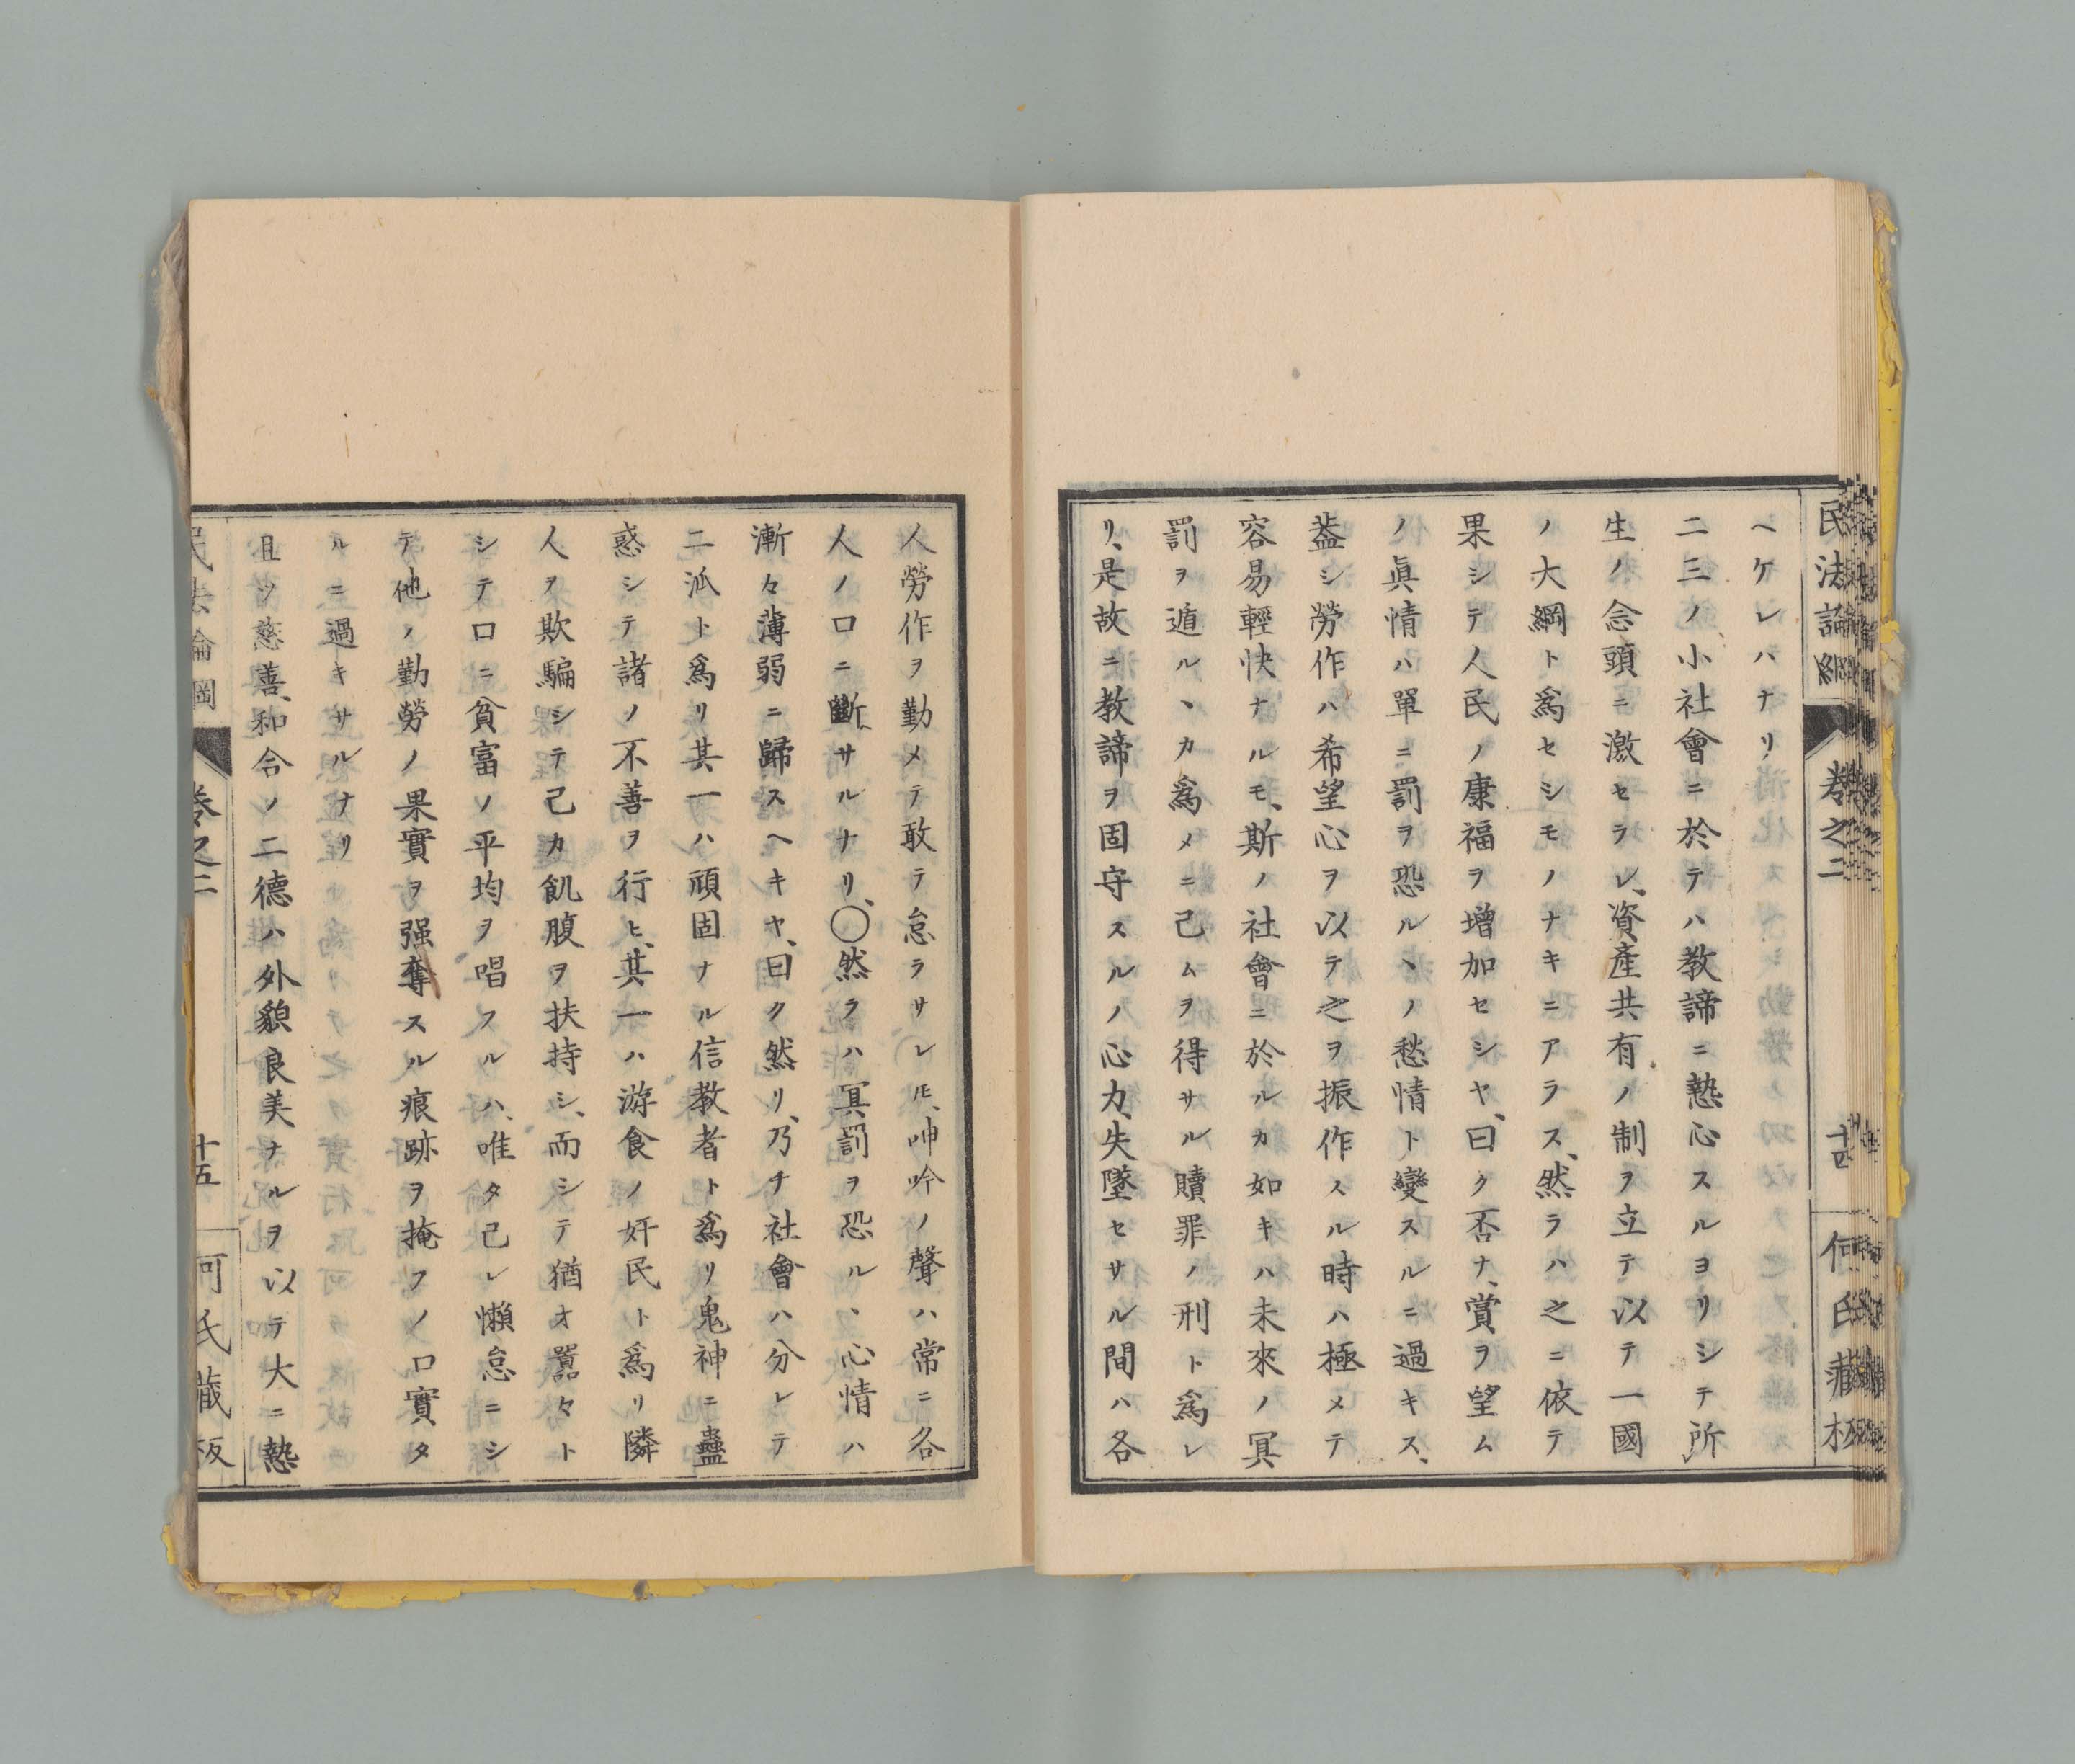 民法論綱
卷之二
十四
何氏藏板
ヘケレハナリ
二三ノ小社會ニ於テハ教諦ニ熱心スルヨリシテ所
生ノ念頭ニ激セラレ、資産共有ノ制ヲ立テ以テ一國
ノ大綱ト爲セシモノナキニアラス、然ラハ之ニ依テ
果シテ人民ノ康福ヲ增加セシヤ、曰ク否ナ、賞ヲ望ム
ノ眞情ハ單ニ罰ヲ恐ルヽノ愁情ト變スルニ過キス、
葢シ勞作ハ希望心ヲ以テ之ヲ振作スル時ハ極メテ
容易輕快ナルモ、斯ノ社會ニ於ルカ如キハ未來ノ冥
罰ヲ遁ルヽカ爲メニ已ムヲ得サル贖罪ノ刑ト爲レ
リ、是故ニ教諦ヲ固守スルノ心力、失墜セサル間ハ各
人勞作ヲ勤メテ敢テ怠ラサレ𪜈、呻吟ノ聲ハ常ニ各
人ノ口ニ斷、サルナリ、〇然ラハ冥罰ヲ恐ルヽ心情ハ
漸々薄弱ニ歸スヘキヤ、曰ク然リ、乃チ社會ハ分レテ
二派ト爲リ其一ハ頑固ナル信教者ト爲リ鬼神ニ蠱
惑シテ諸ノ不善ヲ行ヒ、其一ハ游食ノ奸民ト爲リ隣
人ヲ欺騙シテ己カ飢腹ヲ扶持シ、而シテ猶オ嚣々ト
シテ口ニ貧富ノ平均ヲ唱フルハ、唯タ己レ懶怠ニシ
テ他ノ勤勞ノ果實ヲ强奪スル痕跡ヲ掩フノ口實タ
ルニ過キサルナリ
且ツ慈善、和合ノ二德ハ外貌良美ナルヲ以テ大ニ熱
民法論綱
卷之二
十五
何氏藏板